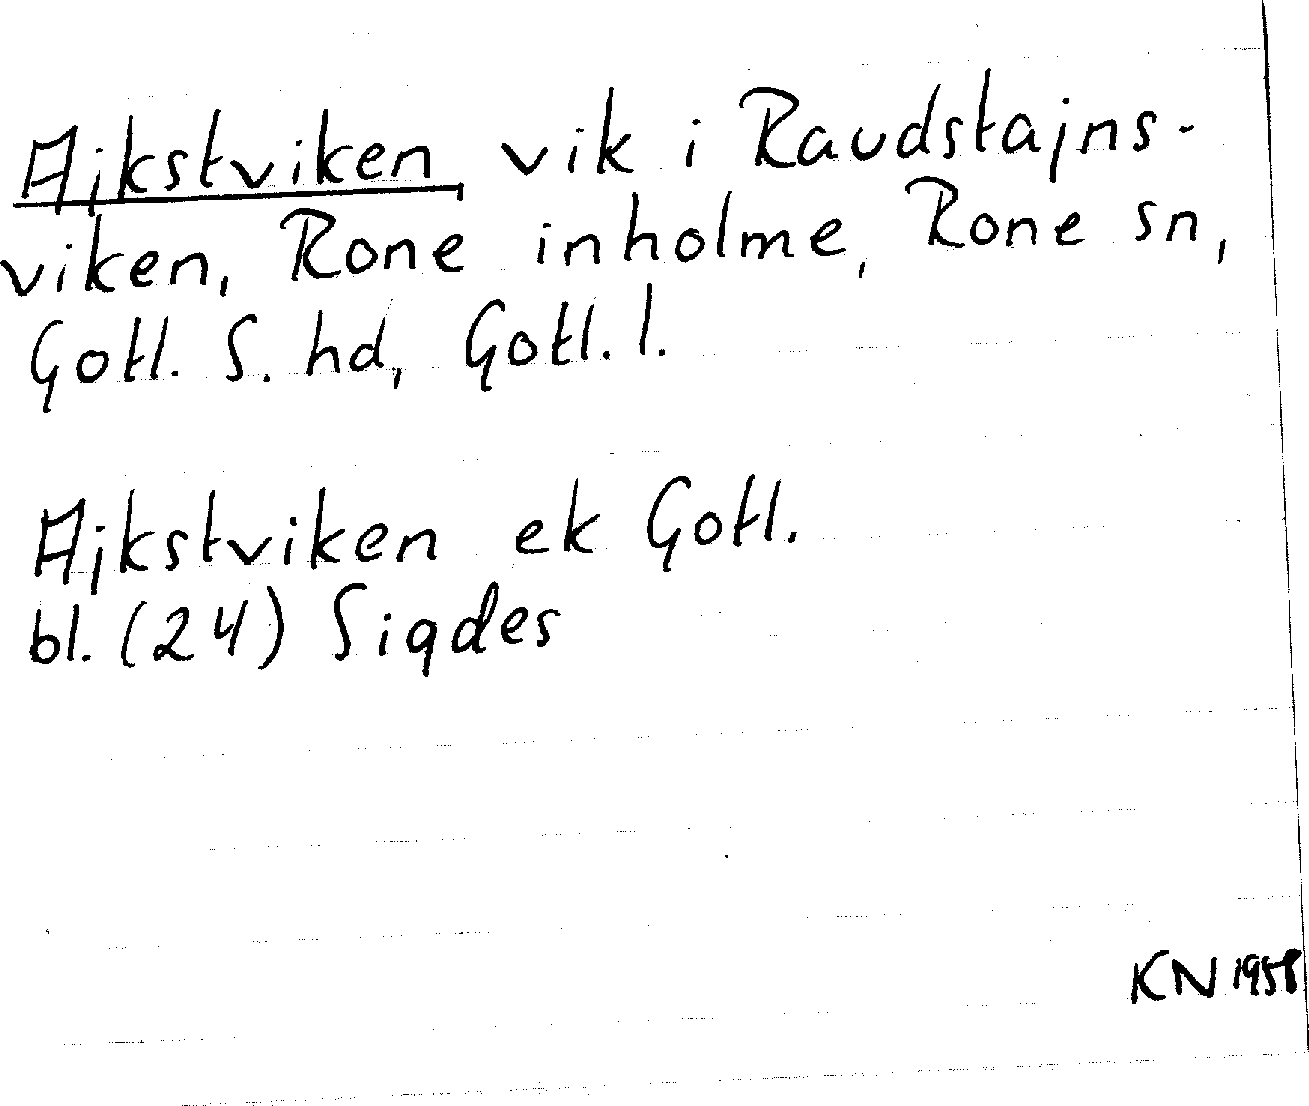 Ajkstviken vik i Raudstajns-
viken, Rone inholme, Rone sn,
Gotl. S. hd, Gotl. l.
Ajkstviken ek Gotl.
bl. (24) Sigdes
KN 1958